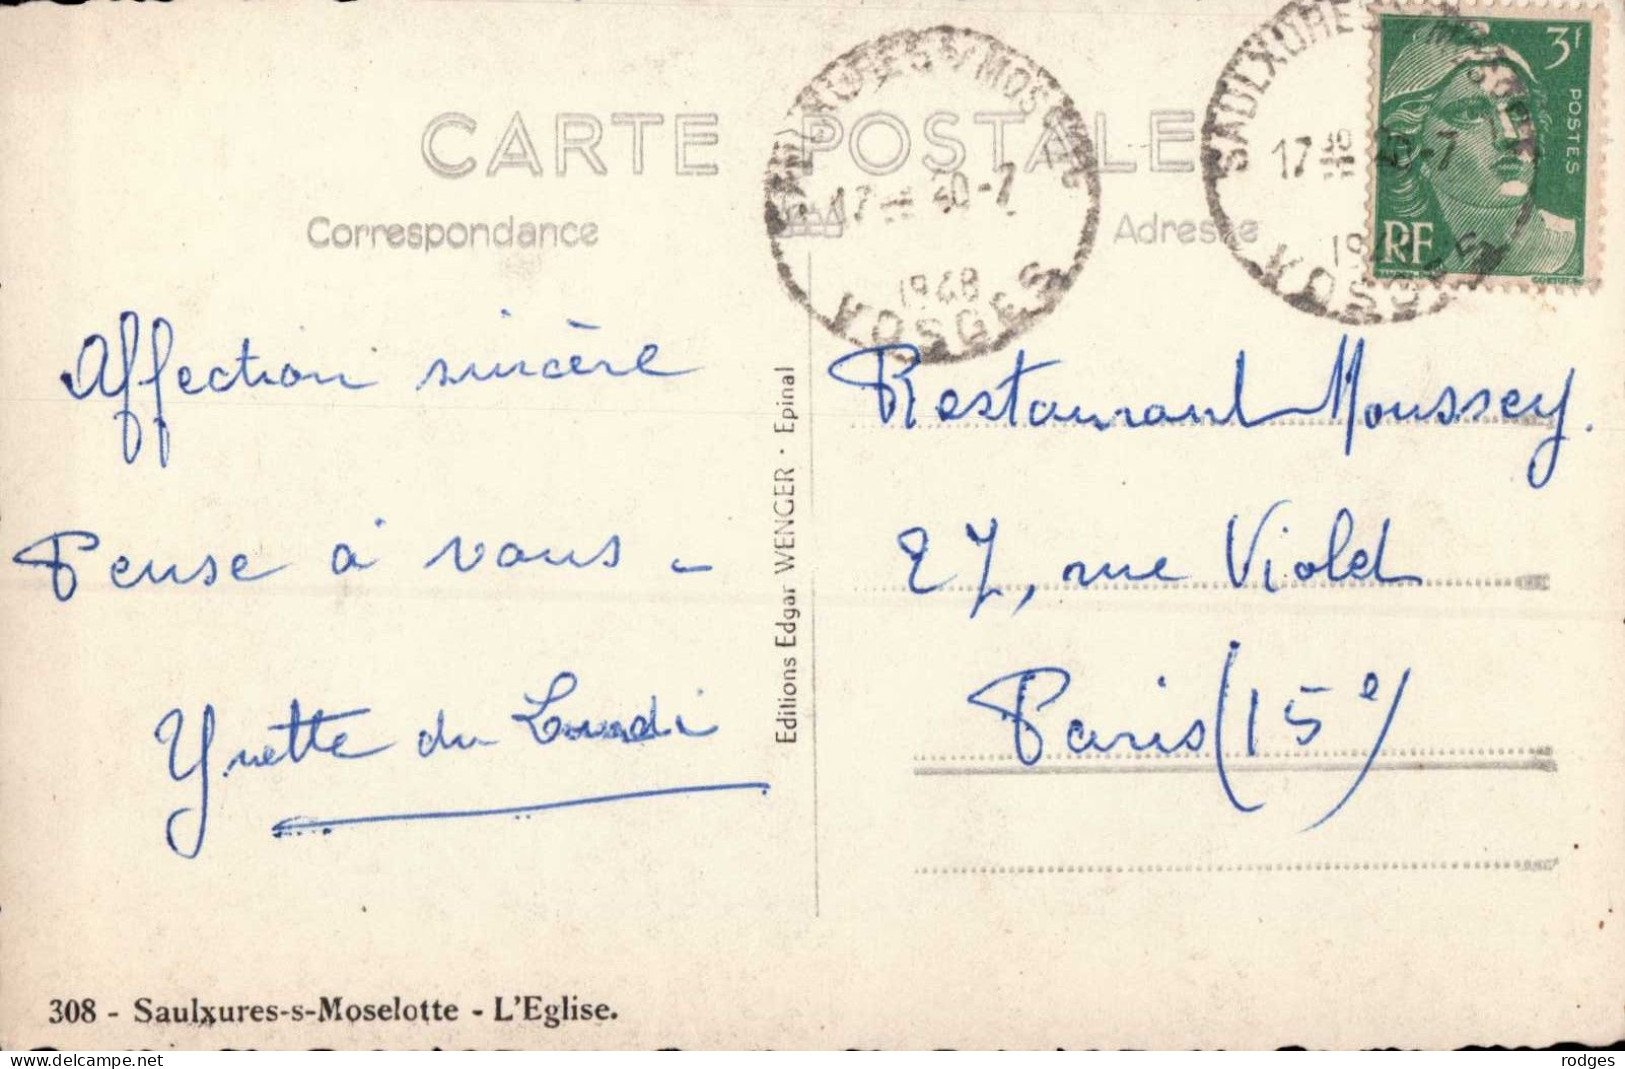 CARTE POSTALE
Correspondance
Adresse
SAULXURES S/ MOSELOTTE
17 30 30-7
1948
VOSGES
SAULXURES S/ MOSELOTTE
17 30 30-7
1948
VOSGES
3F
POSTES
RF
Affection sincère
Pense à vous -
Yvette du
Editions Edgar WENGER - Epinal
Restaurant Moussey.
27, rue Violet
Paris (15e)
308 - Saulxures-s-Moselotte - L'Eglise.
rodges